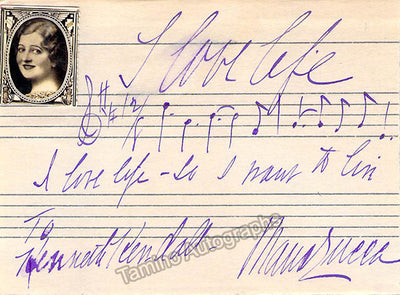 I love life
12/8
I love life - so I want to live
To
Kenneth Kendall
Mana Zucca
Tamino Autographs